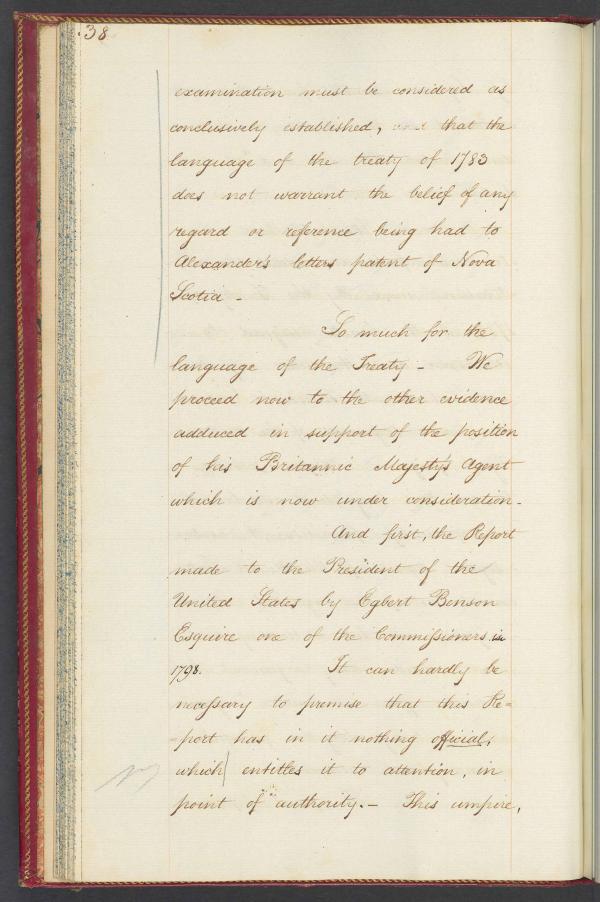 38
examination must be considered as
conclusively established, and that the
language of the treaty of 1783
does not warrant the belief of any
regard or reference being had to
Alexander's letters patent of Nova
Scotia -
So much for the
language of the Treaty - We
proceed now to the other evidence
adduced in support of the position
of his Britannic Majesty's Agent
which is now under consideration -
And first, the Report
made to the President of the
United States by Egbert Benson
Esquire one of the Commissioners in
1798. It can hardly be
necessary to premise that this Re=
=port has in it nothing official,
which entitles it to attention, in
point of authority. - This umpire,